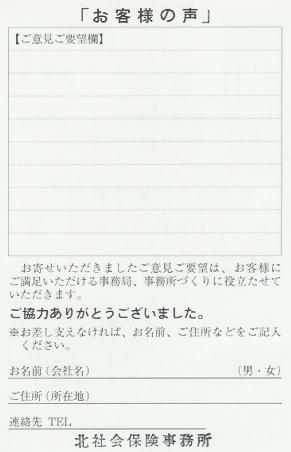 「お客様の声」
【ご意見ご要望欄】
お寄せいただきましたご意見ご要望は、お客様に
ご満足いただける事務局、事務所づくりに役立たせて
いただきます。
ご協力ありがとうございました。
※お差し支えなければ、お名前、ご住所などをご記入
ください。
お名前(会社名) (男・女)
ご住所(所在地)
連絡先 TEL
北社会保険事務所